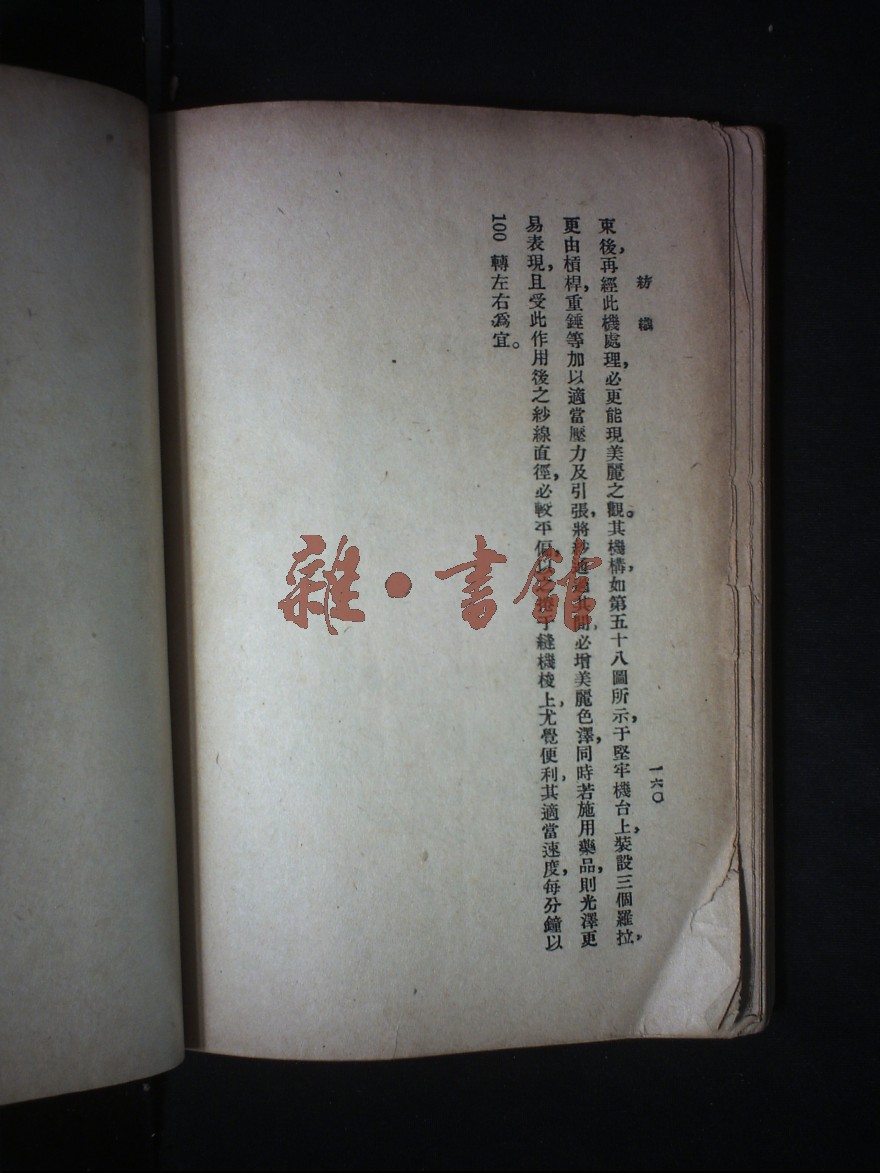 紡織
一六〇
束後，再經此機處理，必更能現美麗之觀。其機構如第五十八圖所示，于堅牢機台上，裝設三個羅拉，
更由槓桿，重錘等加以適當壓力及引張，將紗通過其間，必增美麗色澤，同時若施用藥品，則光澤更
易表現，且受此作用後之紗線直徑，必較平偏，以之捲于縫機梭上，尤覺便利，其適當速度，每分鐘以
100 轉左右爲宜。
雜·書館